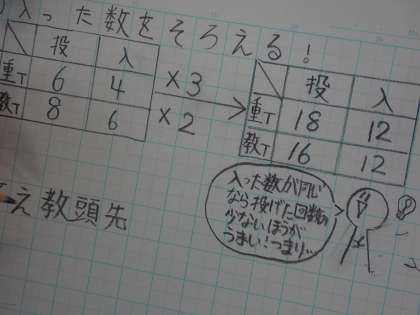 入った数をそろえる!
投 入
重T 6 4
教T 8 6
×3
×2
投 入
重T 18 12
教T 16 12
入った数が同じ
なら投げた回数が
少ないほうが
うまい!つまり…
え 教頭先